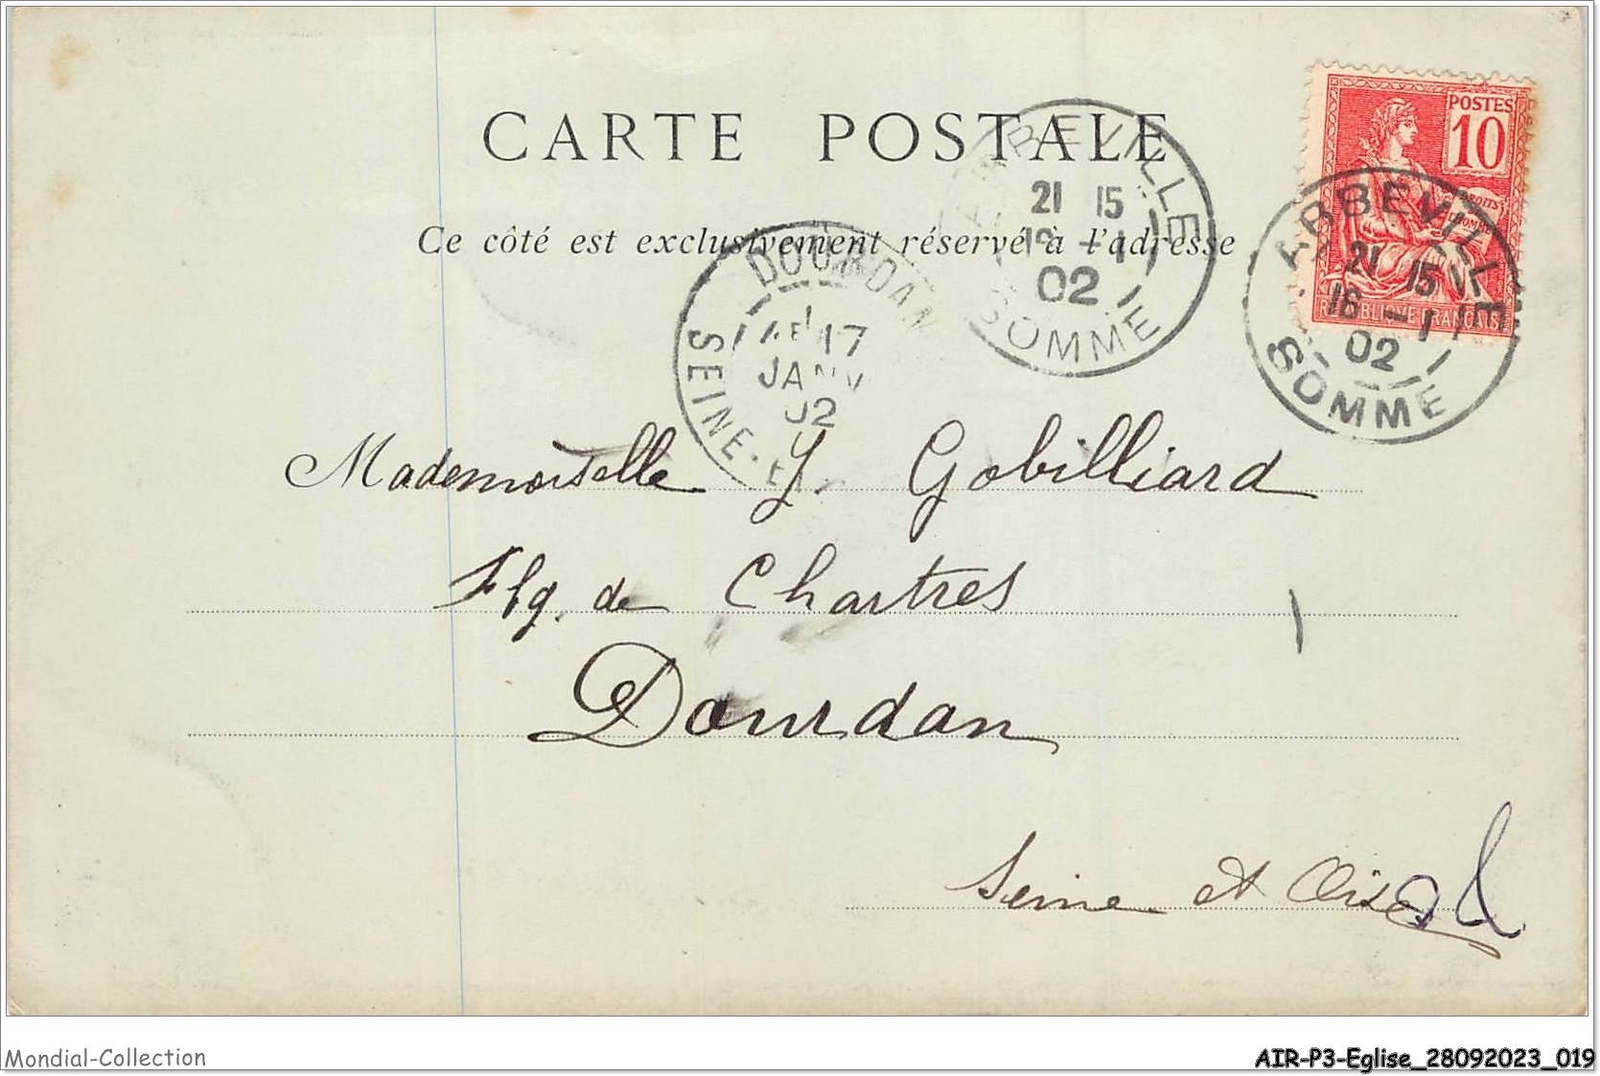 CARTE POSTALE
Ce côté est exclusivement réservé à l'adresse
POSTES
10
DROITS
RÉPUBLIQUE FRANÇAISE
ABBEVILLE
21 15
16 -1
02
SOMME
ABBEVILLE
21 15
-1
02
SOMME
DOURDAN
17
JANV
02
SEINE-E
Mademoiselle Y. Gobilliard
Fbg. de Chartres
Dourdan
Seine et Oise
Mondial-Collection
AIR-P3-Eglise_28092023_019